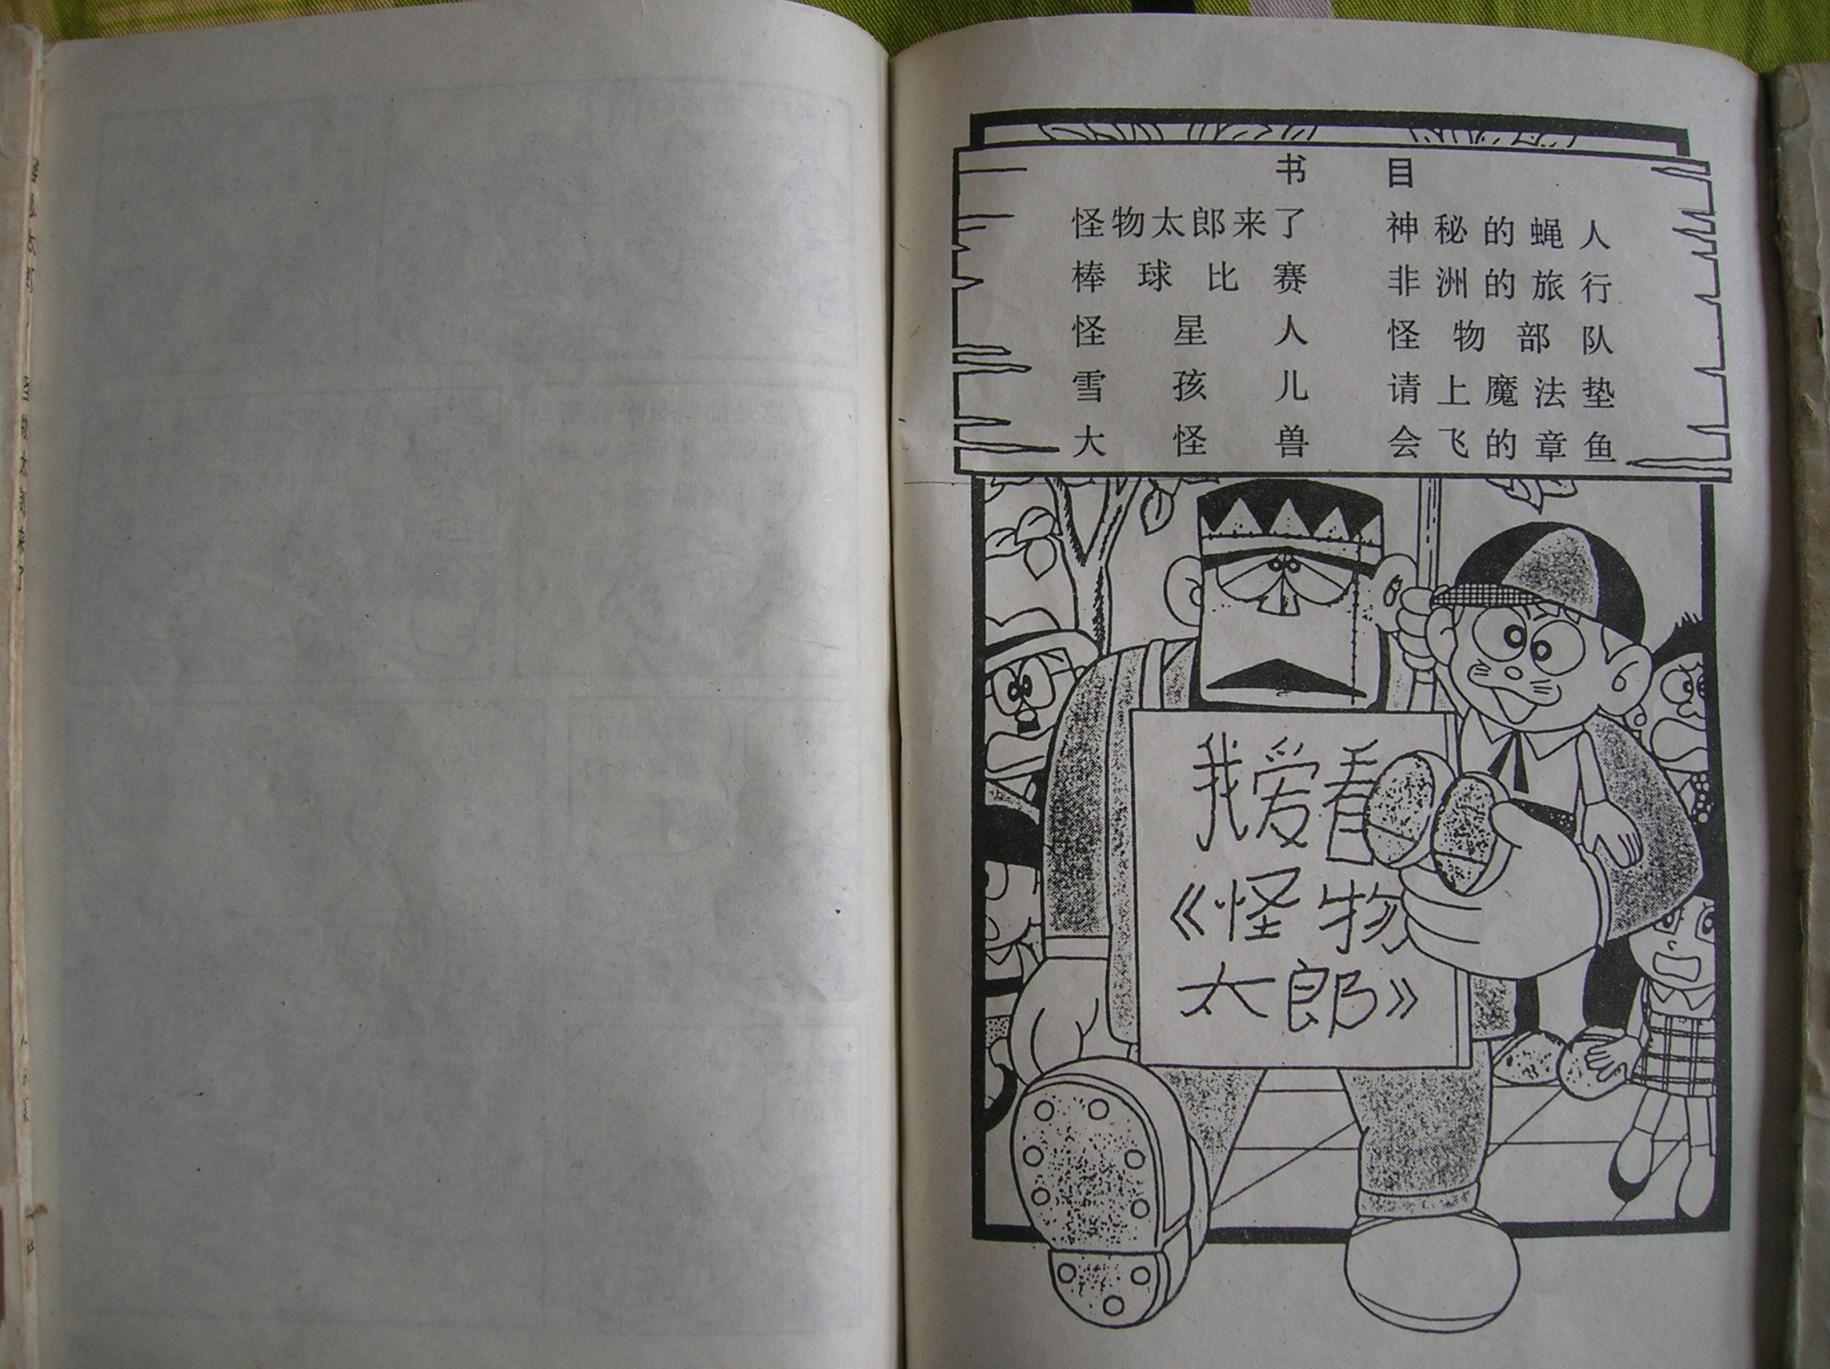 书目
怪物太郎来了
棒球比赛
怪星人
雪孩儿
大怪兽
神秘的蝇人
非洲的旅行
怪物部队
请上魔法垫
会飞的章鱼
我爱看
《怪物
太郎》